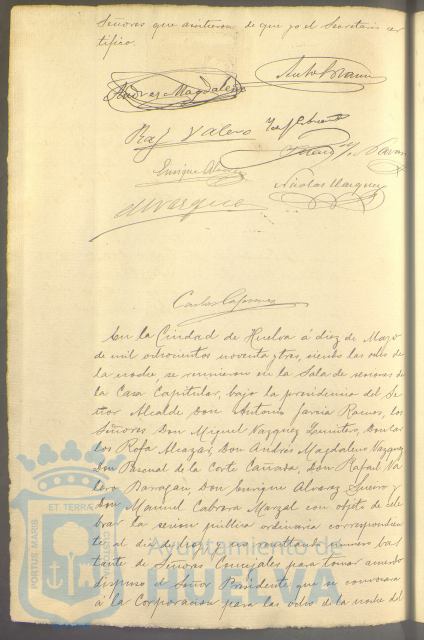 Señores que asistieron de que yo el Secretario cer
tifico.
Andres Magdaleno
Raf Valero
Enrique Alvarez
M Vazquez
Nicolas Vazquez
En la Ciudad de Huelva á diez de Mayo
de mil ochocientos noventa y tres, siendo las ocho de
la noche se reunieron en la Sala de sesiones de
la Casa Capitular, bajo la presidencia del Se
ñor Alcalde Don Antonio Garcia Ramos, los
Señores Don Miguel Vazquez Don Car
los Rofa Alcazar, Don Andrés Magdaleno Vazquez
Don Pascual de la Corte Cañada, Don Rafael Va
lero Barragan, Don Enrique Alvarez y
Don Manuel Cabrera Marzal con objeto de cele
brar la sesion publica ordinaria correspondien
te al dia de hoy, y no resultando numero bas
tante de Señores Concejales para tomar acuerdo
dispuso el Señor Presidente que se convocara
á la Corporacion para las ocho de la noche del
PORTUS MARIS
ET TERRÆ
CUSTODIA
Ayuntamiento de
HUELVA